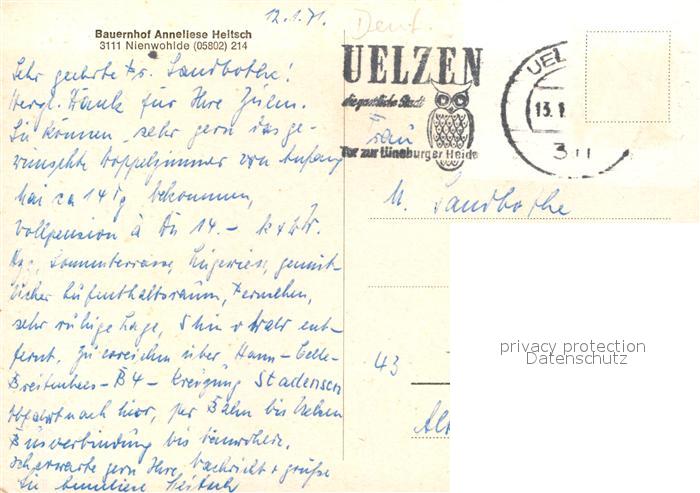 12.1.71.
Dent.
Bauernhof Anneliese Heitsch
3111 Nienwohlde (05802) 214
Sehr geehrte Fr. Landbothe!
Herzl. Dank für Ihre Zeilen.
Sie können sehr gern das ge-
wünschte Doppelzimmer von Anfang
Mai ca 14 Tg bekommen,
Vollpension à DM 14.- k + w W.
Hzg, Sommerterrasse, Liegewiese, gemüt-
licher Aufenthaltsraum, Fernsehen,
sehr ruhige Lage, 5 Min v Wald ent-
fernt. Zu erreichen über Hann - Celle -
Breitenhees - B4 - Kreuzung Stadensen
Abfahrt nach hier, per Bahn bis Uelzen
Busverbindung bis Nienwohlde.
Ich erwarte gern Ihre Nachricht + grüße
Sie Anneliese Heitsch
UELZEN
die gastliche Stadt
Tor zur Lüneburger Heide
UEL
13.1
311
Frau
M. Landbothe
43
Al
privacy protection
Datenschutz